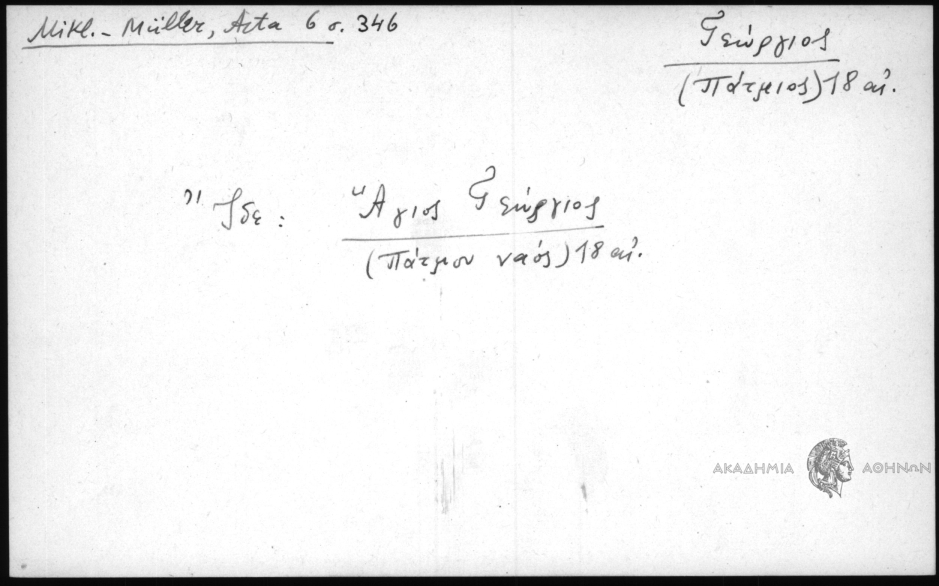 Mikl.-Müller, Acta 6 σ. 346
Γεώργιος
(Πάτμιος) 18 αἰ.
Ἴδε: Ἅγιος Γεώργιος
(Πάτμου ναός) 18 αἰ.
ΑΚΑΔΗΜΙΑ ΑΘΗΝΩΝ